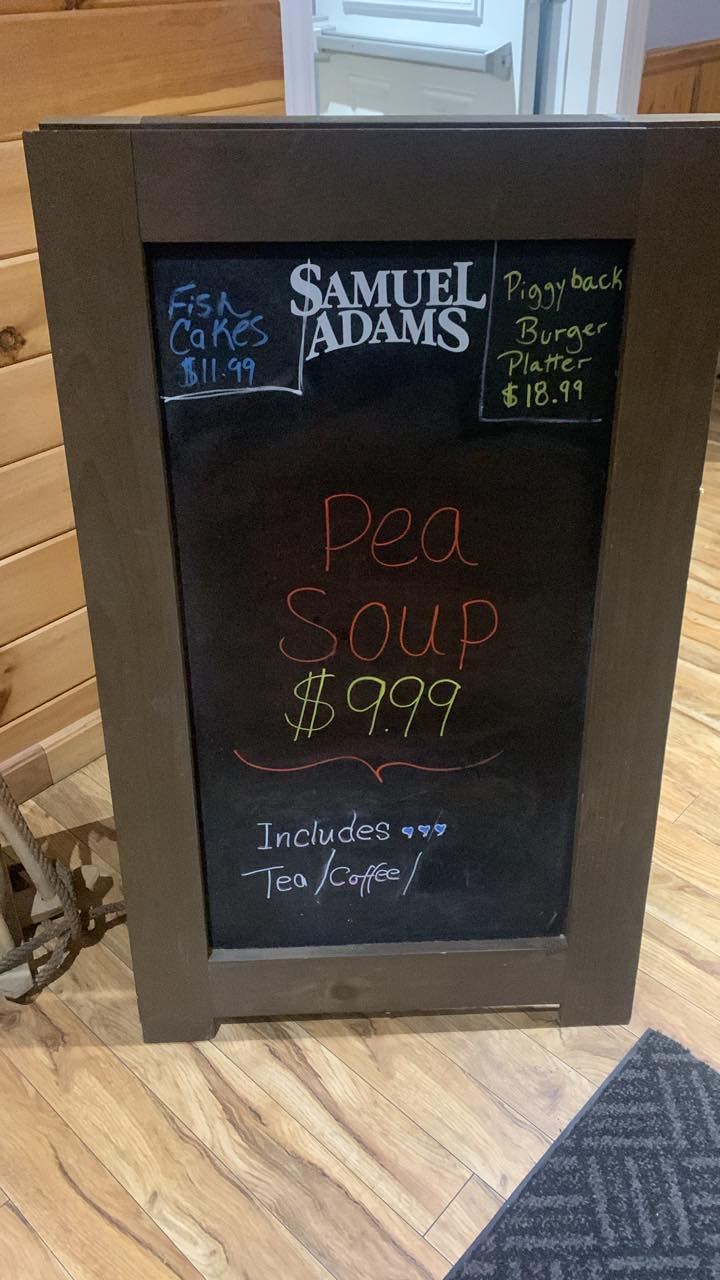 SAMUEL
ADAMS
Fish
Cakes
$11.99
Piggyback
Burger
Platter
$18.99
Pea
Soup
$9.99
Includes
Tea/Coffee/